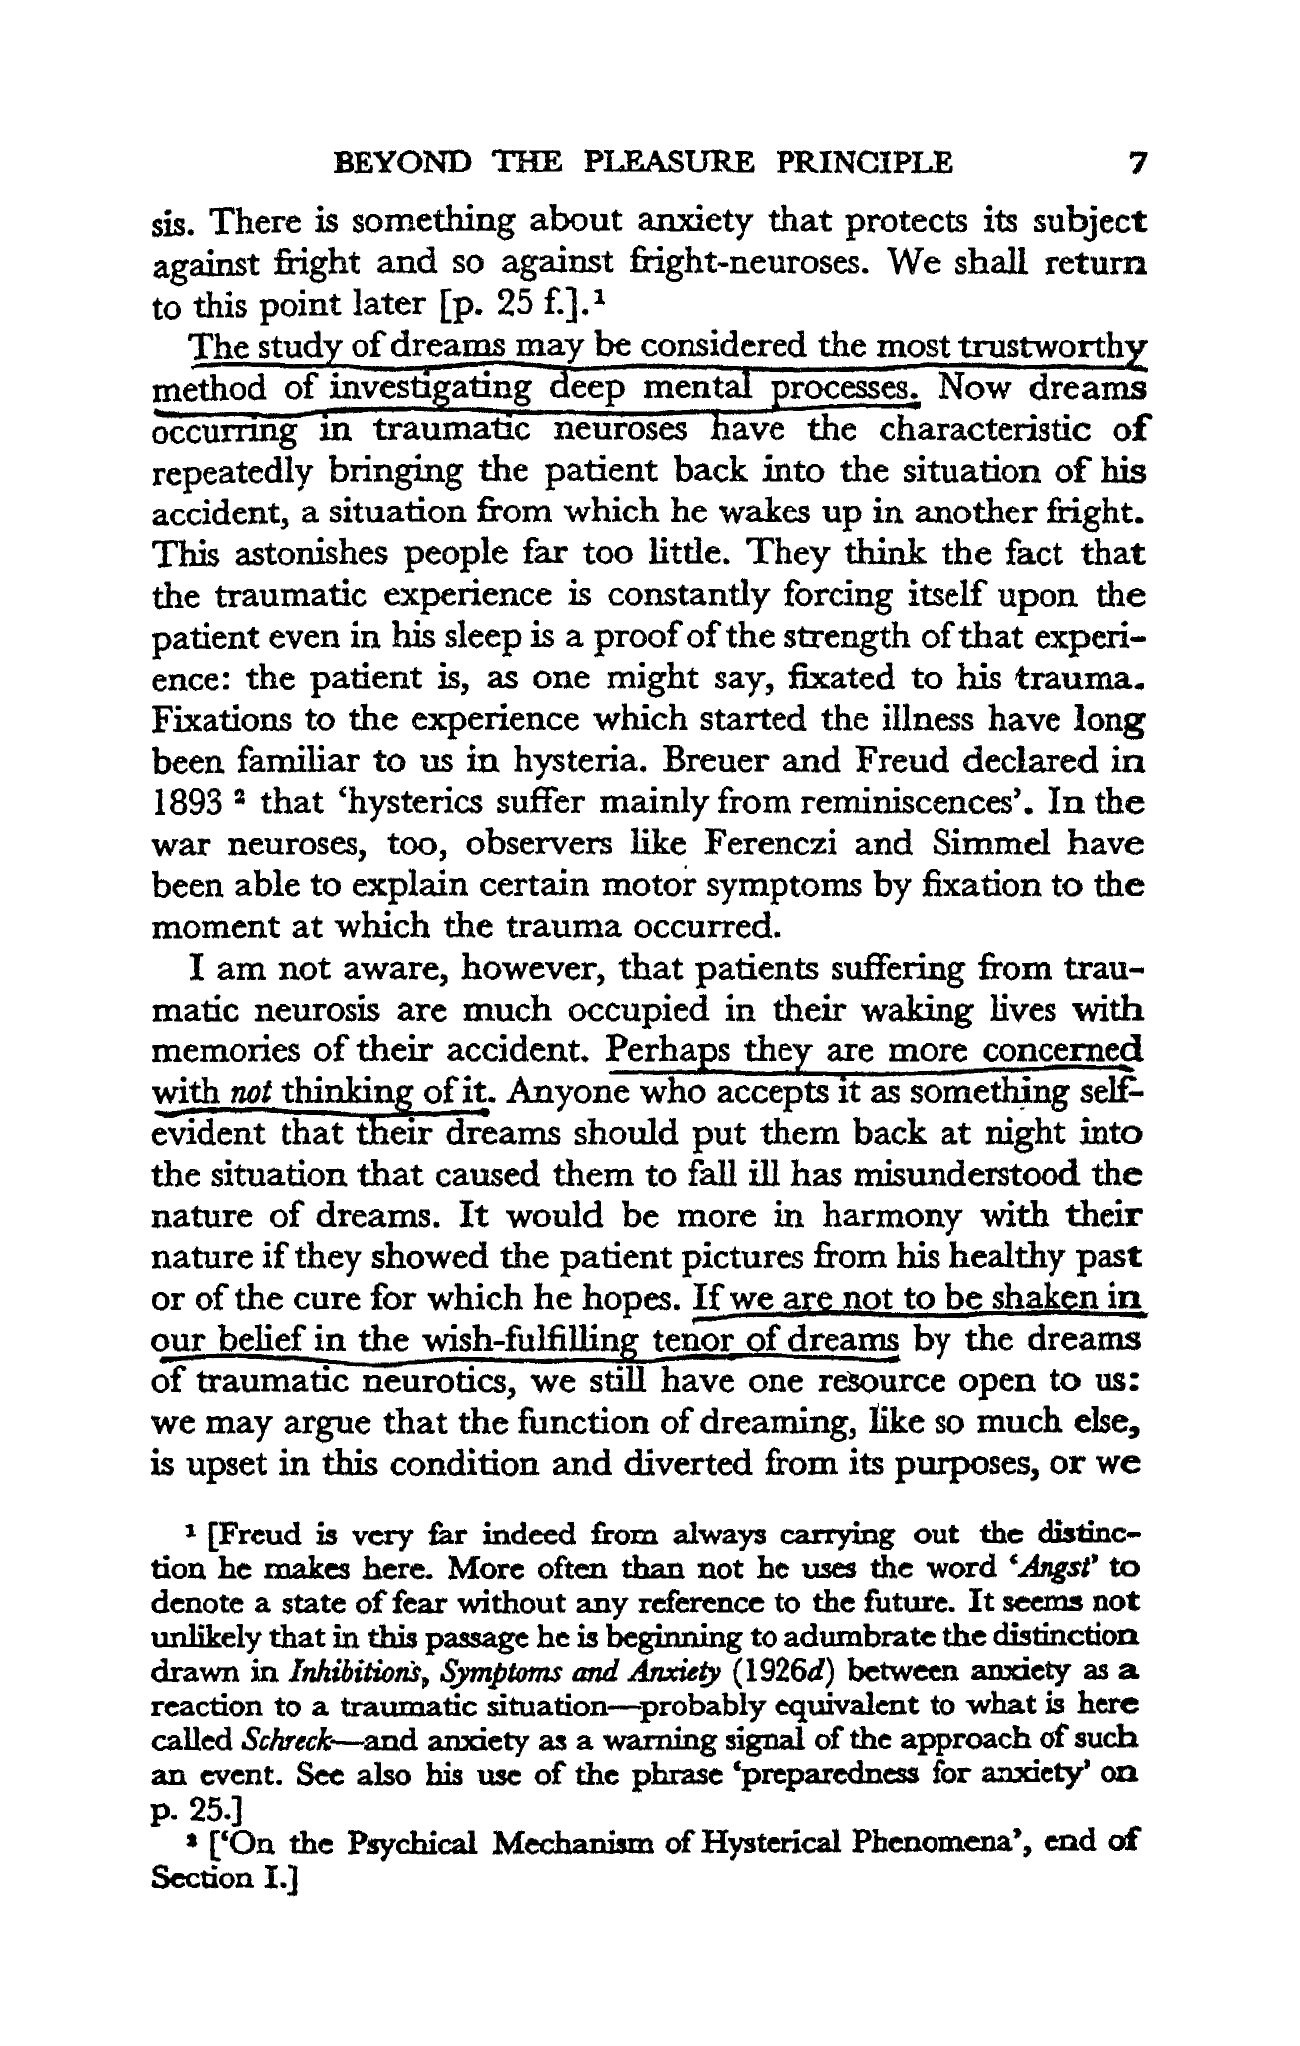 BEYOND THE PLEASURE PRINCIPLE 7
sis. There is something about anxiety that protects its subject
against fright and so against fright-neuroses. We shall return
to this point later [p. 25 f.].¹
The study of dreams may be considered the most trustworthy
method of investigating deep mental processes. Now dreams
occurring in traumatic neuroses have the characteristic of
repeatedly bringing the patient back into the situation of his
accident, a situation from which he wakes up in another fright.
This astonishes people far too little. They think the fact that
the traumatic experience is constantly forcing itself upon the
patient even in his sleep is a proof of the strength of that experi-
ence: the patient is, as one might say, fixated to his trauma.
Fixations to the experience which started the illness have long
been familiar to us in hysteria. Breuer and Freud declared in
1893 ² that ‘hysterics suffer mainly from reminiscences’. In the
war neuroses, too, observers like Ferenczi and Simmel have
been able to explain certain motor symptoms by fixation to the
moment at which the trauma occurred.
I am not aware, however, that patients suffering from trau-
matic neurosis are much occupied in their waking lives with
memories of their accident. Perhaps they are more concerned
with not thinking of it. Anyone who accepts it as something self-
evident that their dreams should put them back at night into
the situation that caused them to fall ill has misunderstood the
nature of dreams. It would be more in harmony with their
nature if they showed the patient pictures from his healthy past
or of the cure for which he hopes. If we are not to be shaken in
our belief in the wish-fulfilling tenor of dreams by the dreams
of traumatic neurotics, we still have one resource open to us:
we may argue that the function of dreaming, like so much else,
is upset in this condition and diverted from its purposes, or we
¹ [Freud is very far indeed from always carrying out the distinc-
tion he makes here. More often than not he uses the word ‘Angst’ to
denote a state of fear without any reference to the future. It seems not
unlikely that in this passage he is beginning to adumbrate the distinction
drawn in Inhibitions, Symptoms and Anxiety (1926d) between anxiety as a
reaction to a traumatic situation—probably equivalent to what is here
called Schreck—and anxiety as a warning signal of the approach of such
an event. See also his use of the phrase ‘preparedness for anxiety’ on
p. 25.]
² [‘On the Psychical Mechanism of Hysterical Phenomena’, end of
Section I.]